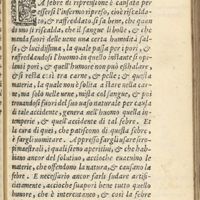 LA febre di riprensione è causata per
essersi l'infermo ripreso, cioè riscalda
to, & raffreddato, si fa bene, che quan
do uno si riscalda, che il sangue li bolle, & che
manda fuori delle vene una certa humidità sal
sa, & lucidissima, la quale passa per i pori, &
raffreddandosi l'huomo in quello instante si op
lano i pori, & quell'humore non può eshalare,
& si resta così tra carne, & pelle; & questa
materia, la quale era dentro delle vene, nõ no
ceva, ma solo nelle vene, mista col sangue, & poi
trovandosi fuori del suo uso naturale per causa
di tale accidente, genera nell'huomo quella in
temperie, & quell'accidente di tal febre. Et
la cura di quei, che patiscono di questa febre
è fargli vomitare. Appresso fargli usare siro-
pi maestrali, quali sieno aperitivi, & che hab-
biano ancor del solutivo, acciòche evacuino le
materie, che offendono la natura, & causano la
febre. E necessario ancor farli sudare artifi-
ciatamente, acciòche svapori bene tutto quello
humore, che è intercutaneo, & così la febre